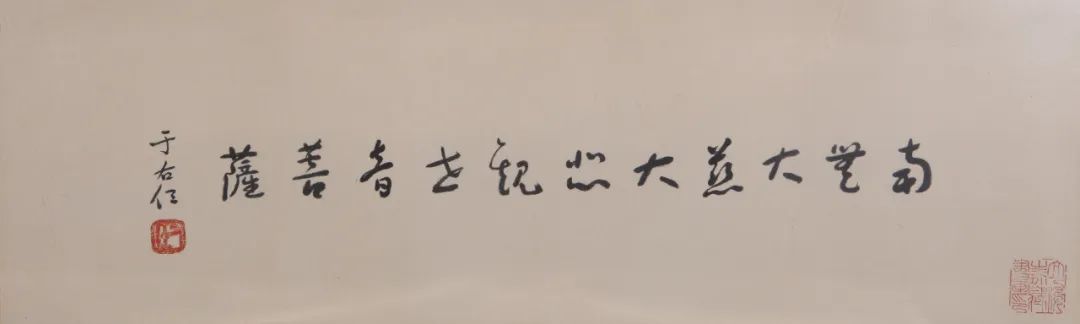 南無大慈大悲觀世音菩薩
于右任